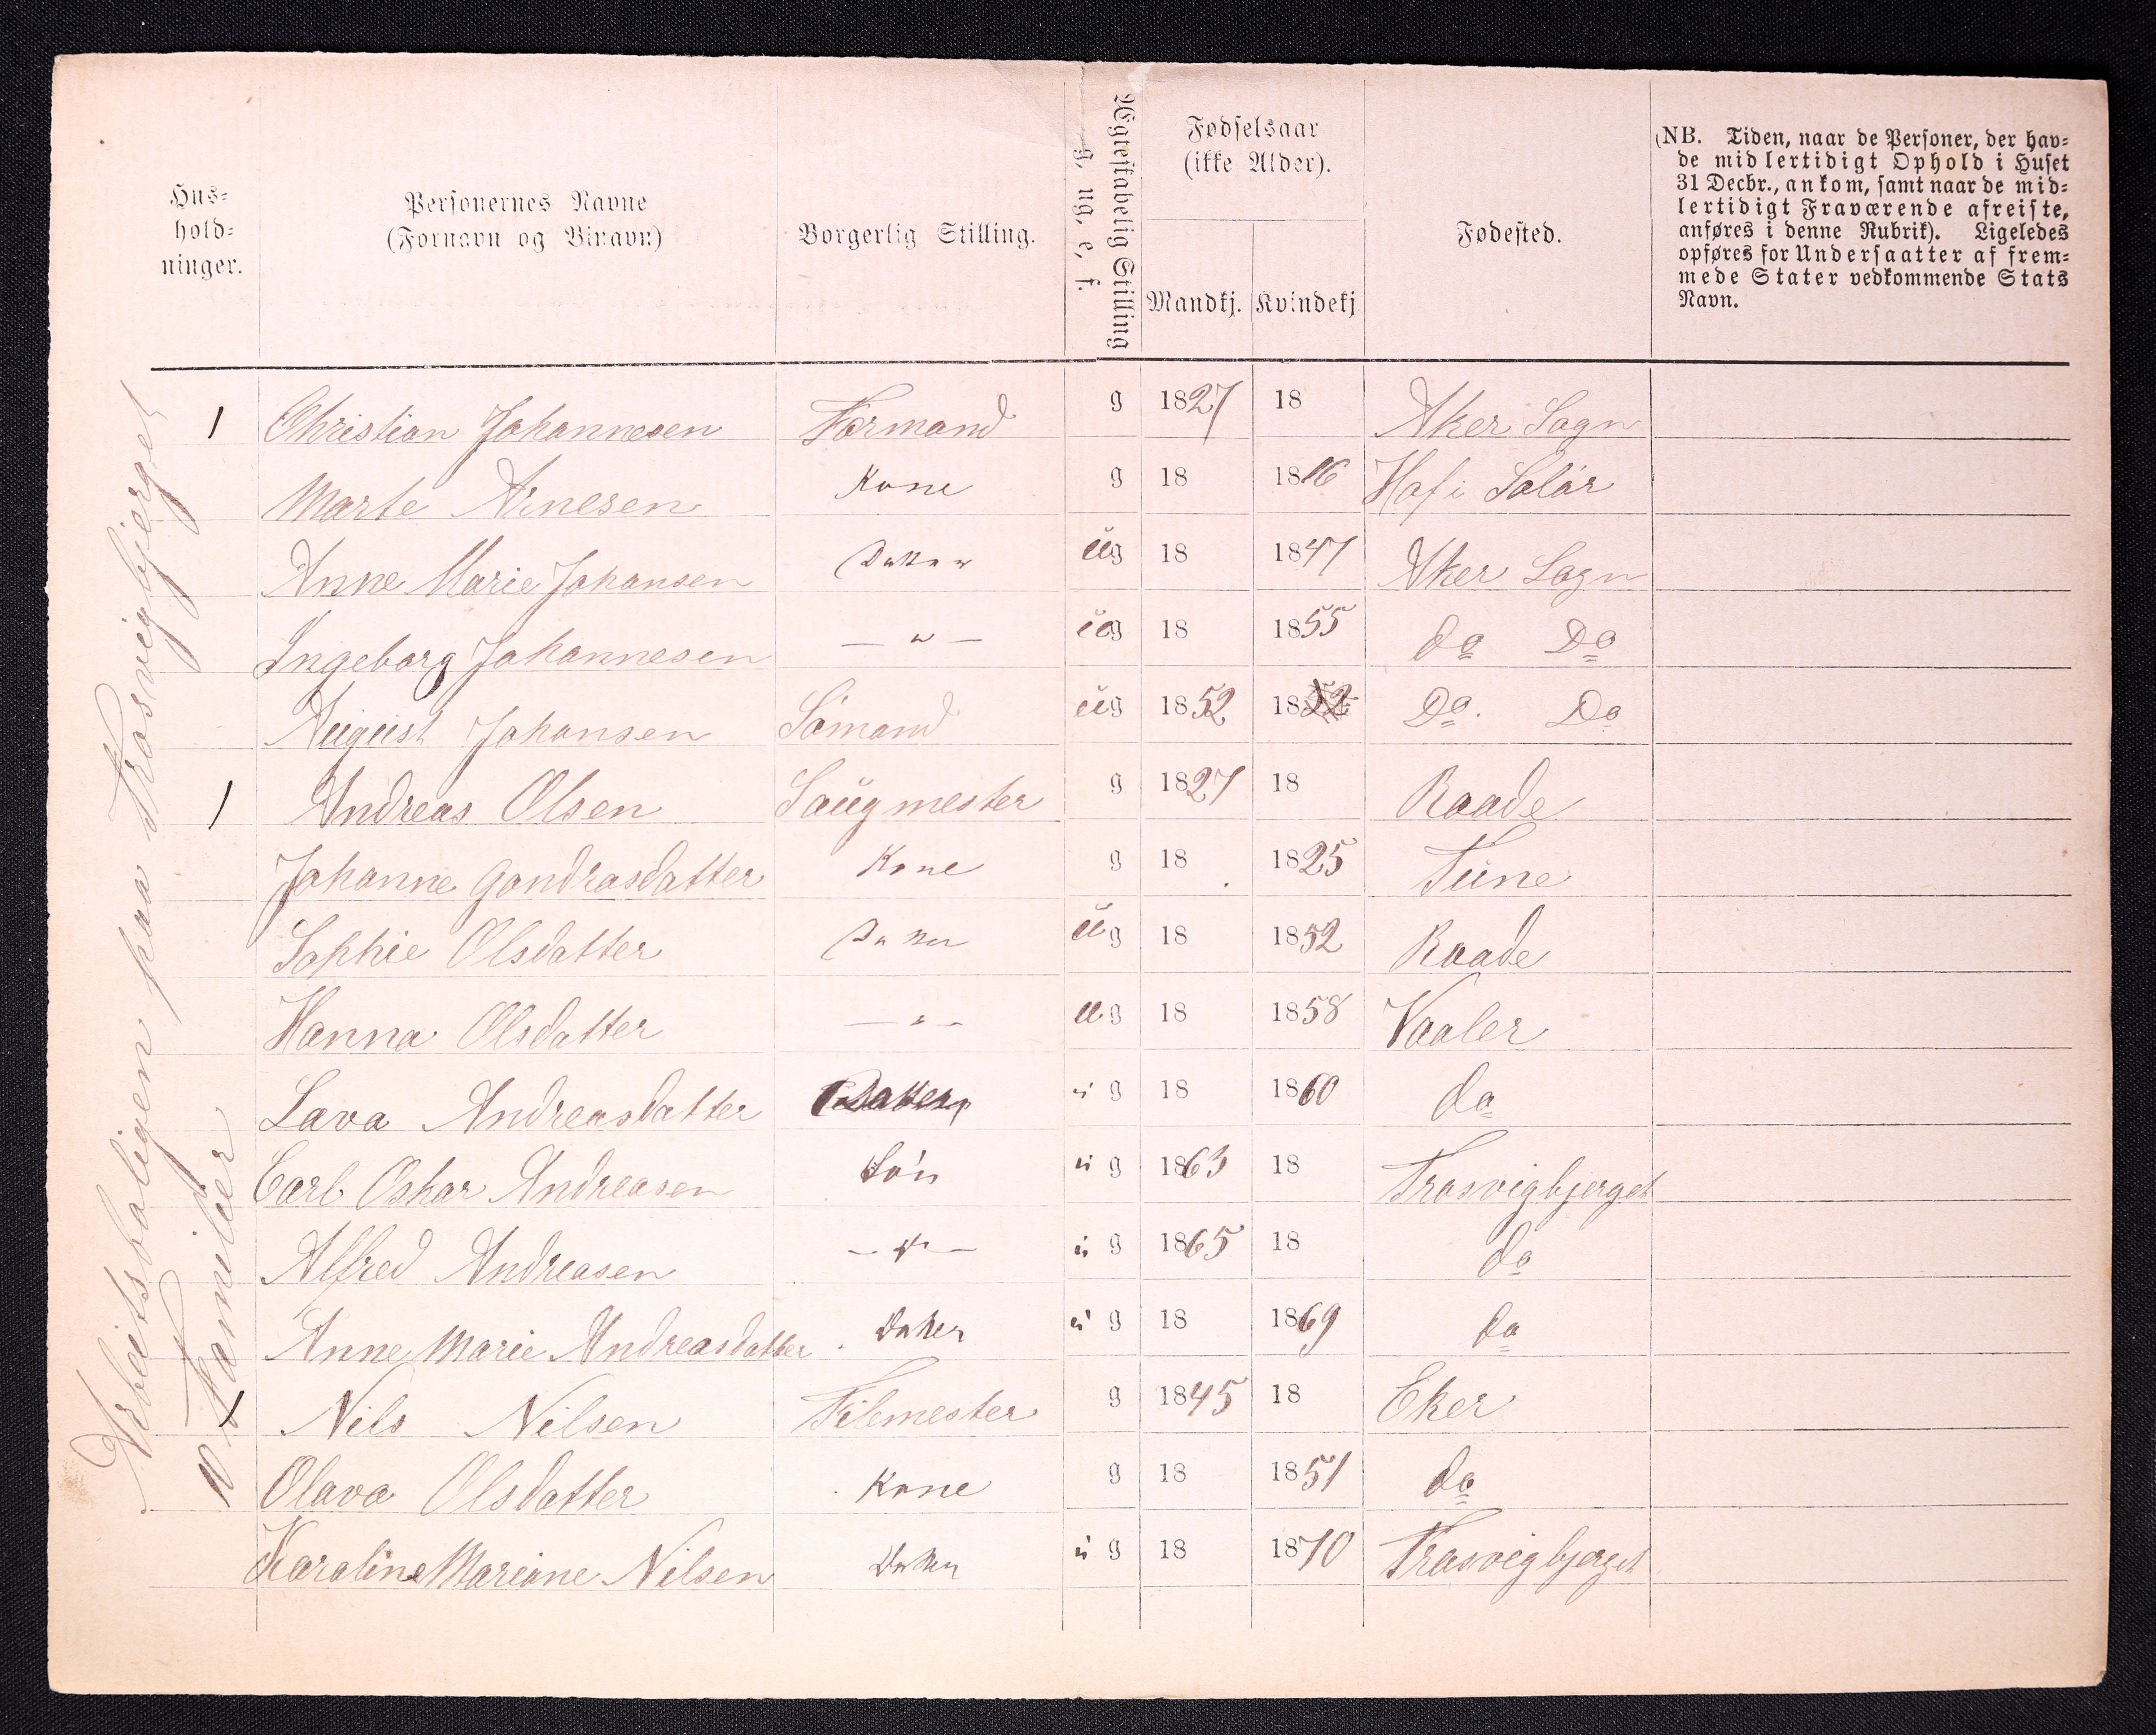 Hus-
hold-
ninger.
Personernes Navne
(Fornavn og Binavn)
Borgerlig Stilling.
Ægteskabelig Stilling
g, ug, e, f.
Fødselsaar
(ikke Alder).
Mandkj. Kvindekj
Fødested.
(NB. Tiden, naar de Personer, der hav-
de midlertidigt Ophold i Huset
31 Decbr., ankom, samt naar de mid-
lertidigt Fraværende afreiste,
anføres i denne Rubrik). Ligeledes
opføres for Undersaatter af frem-
mede Stater vedkommende Stats
Navn.
Arbeidsboligen paa Trosvigbjerget
10 Familier
1 Christian Johannesen Formand g 1827 18 Aker Sogn
Marte Arnesen Kone g 18 1816 Hof i Solør
Anne Marie Johansen Datter ug 18 1847 Aker Sogn
Ingeborg Johannesen — " — ug 18 1855 do Do
August Johansen Sømand ug 1852 1852 Do. Do
1 Andreas Olsen Saugmester g 1827 18 Raade
Johanne Gondrasdatter Kone g 18 1825 Tune
Sophie Olsdatter Datter ug 18 1852 Raade
Hanna Olsdatter — " — ug 18 1858 Vaaler
Lava Andreasdatter Datter ug 18 1860 do
Carl Oskar Andreasen Søn ug 1863 18 Trosvigbjerget
Alfred Andreasen — " — ug 1865 18 do
Anne Marie Andreasdatter Datter ug 18 1869 do
1 Nils Nilsen Filemester g 1845 18 Eker
Olava Olsdatter Kone g 18 1851 do
Karoline Mariane Nilsen Datter ug 18 1870 Trosvigbjerget